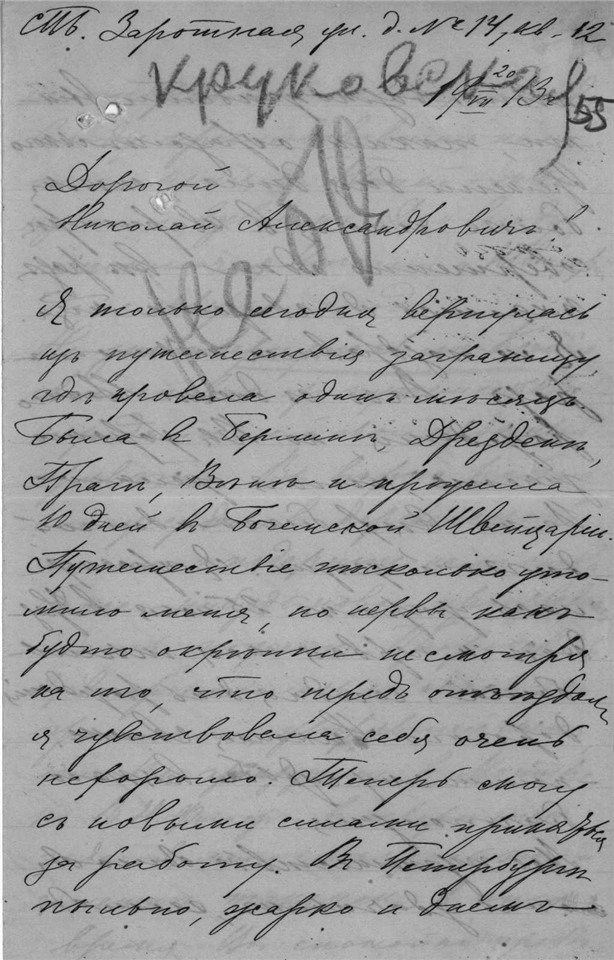 СПб. Заротная ул. д. № 14, кв. 12
Круковская
19 20/VII 13 г.
55
Дорогой
Николай Александровичъ!
Я только сегодня вернулась
изъ путешествія заграницу,
гдѣ провела одинъ мѣсяцъ.
Была въ Берлинѣ, Дрезденѣ,
Прагѣ, Вѣнѣ и прожила
10 дней въ Богемской Швейцаріи.
Путешествіе нѣсколько уто-
мило меня, но нервы какъ
будто окрѣпли несмотря
на то, что передъ отъѣздомъ
я чувствовала себя очень
нехорошо. Теперь смогу
съ новыми силами приняться
за работу. Въ Петербургѣ
пыльно, жарко и днемъ